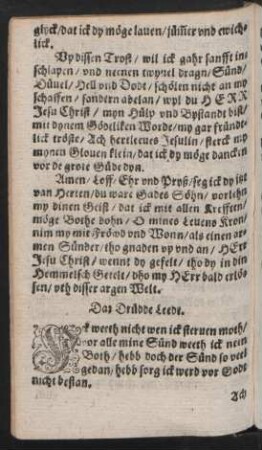 glyck / dat ick dy möge lauen / jümmer vnd ewich-
lick.
Vp dissen Trost / wil ick gahr sanfft in-
schlapen / vnd neenen twyuel dragn / Sünd /
Düuel / Hell vnd Dodt / schölen nicht an my
schaffen / sandern adelan / wyl du HERR
Jesu Christ / myn Hülp vnd Bystandt bist /
mit dynem Gödtliken Worde / my gar fründt-
lick tröste / Ach hertleues Jesulin / sterck my
mynen Glouen klein / dat ick dy möge dancken
vor de grote Güde dyn.
Amen / Loff / Ehr vnd Pryß / seg ick dy itzt
van Herten / du ware Gades Söhn / vorlehn
my dinen Geist / dat ick mit allen Krefften /
möge Bothe dohn / O mines Leuens Kron /
nim my mit Fröwd vnd Wonn / als einen ar-
men Sünder / tho gnaden vp vnd an / HErr
Jesu Christ / wennt dy gefelt / tho dy in din
Hemmelsch Getelt / dho my HErr bald erlö-
sen / vth disser argen Welt.
Dat Drüdde Leedt.
Ick weeth nicht wen ick steruen moth /
vor alle mine Sünd weeth ick nein
Both / hebb doch der Sünd so veel
gedan / hebb sorg ick werd vor Gode
nicht bestan.
Ach